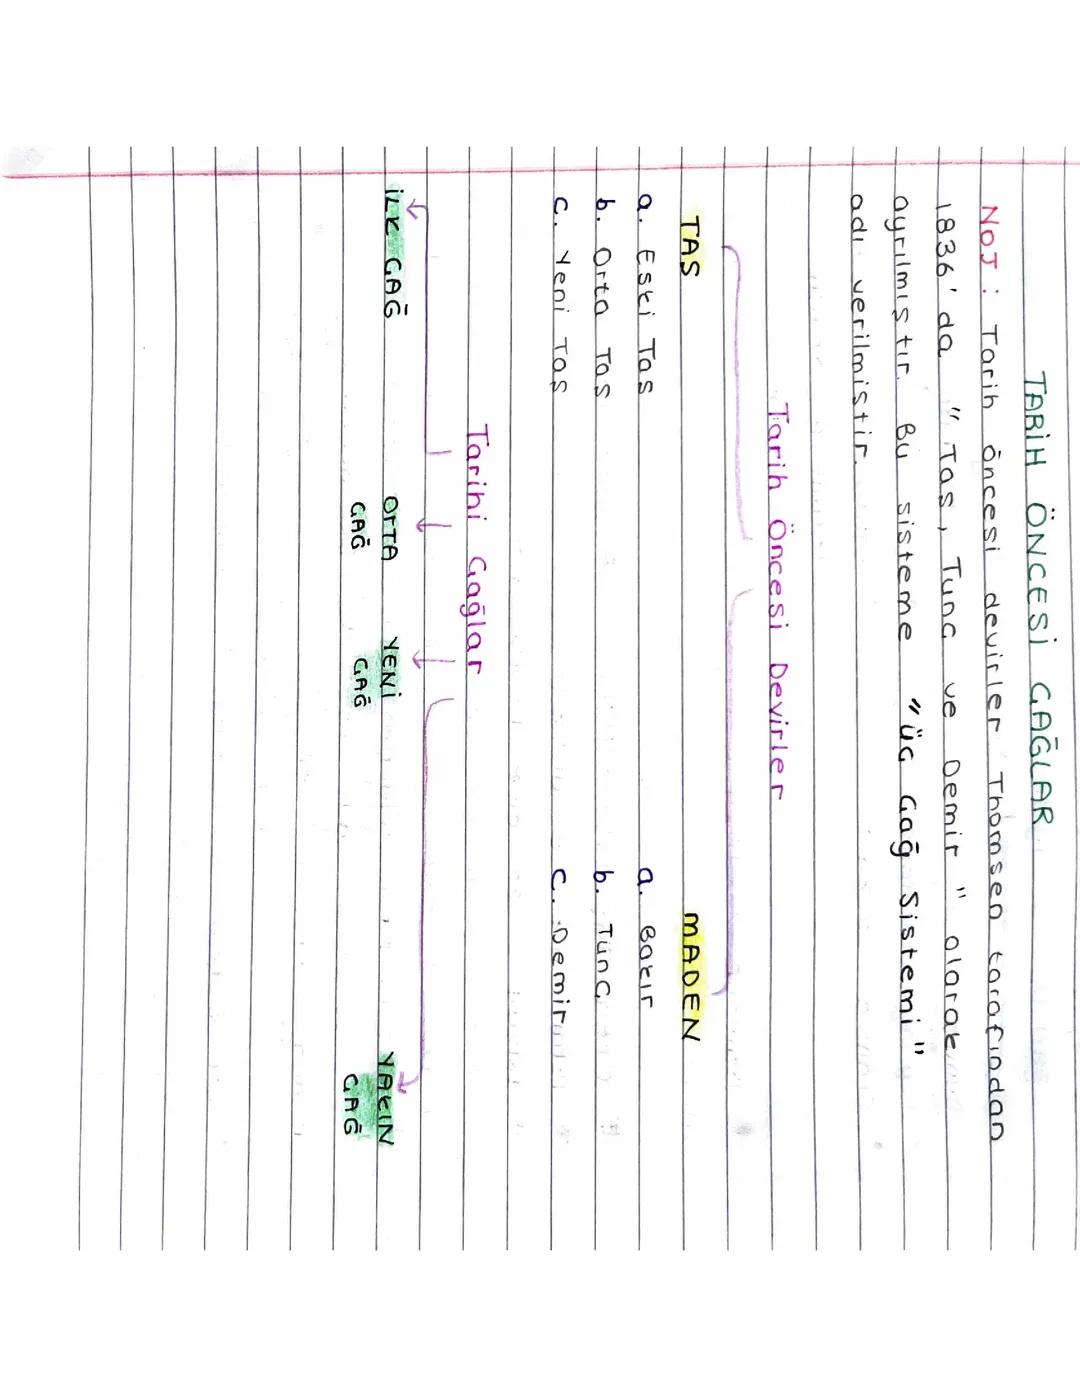 TARİH ÖNCESİ ÇAĞLAR
NOT: Tarih öncesi devirler Thomsen tarafından
1836'da "Taş, Tunç ve Demir" olarak
ayrılmıştır. Bu sisteme "üç Çağ Sistemi"
adı verilmiştir.
Tarih Öncesi Devirler
TAŞ MADEN
a. Eski Taş a. Bakır
b. Orta Taş b. Tunç
c. Yeni Taş c. Demir
Tarihi Çağlar
İLK ÇAĞ ORTA YENİ YAKIN
ÇAĞ ÇAĞ ÇAĞ